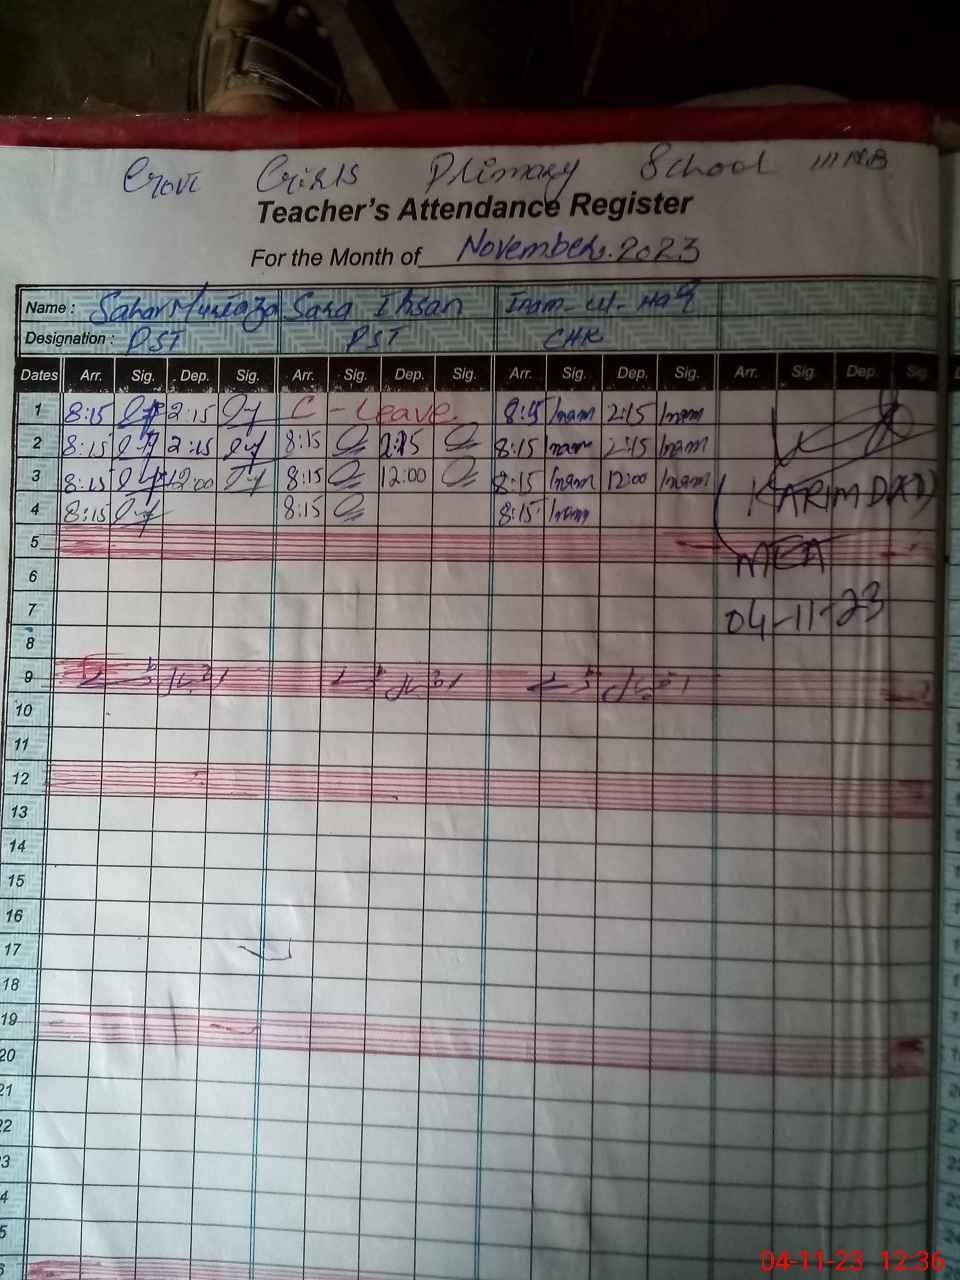 Govt Girls Primary School 111 NB
Teacher's Attendance Register
For the Month of November. 2023
Name : Sahar Murtaza Sara Ihsan Inam-ul-Haq
Designation : PST PST CHK
Dates Arr. Sig. Dep. Sig. Arr. Sig. Dep. Sig. Arr. Sig. Dep. Sig. Arr. Sig. Dep. Sig
1 8:15 2:15 C - Leave. 8:15 Inam 2:15 Inam
2 8:15 2:15 8:15 2:15 8:15 Inam 2:15 Inam
3 8:15 12:00 8:15 12:00 8:15 Inam 12:00 Inam
4 8:15 8:15 8:15 Inam
(KARIM DAD)
5
MEA
6
7
04-11-23
8
9
10
11
12
13
14
15
16
17
18
19
20
21
22
3
4
5
6
04-11-23 12:36